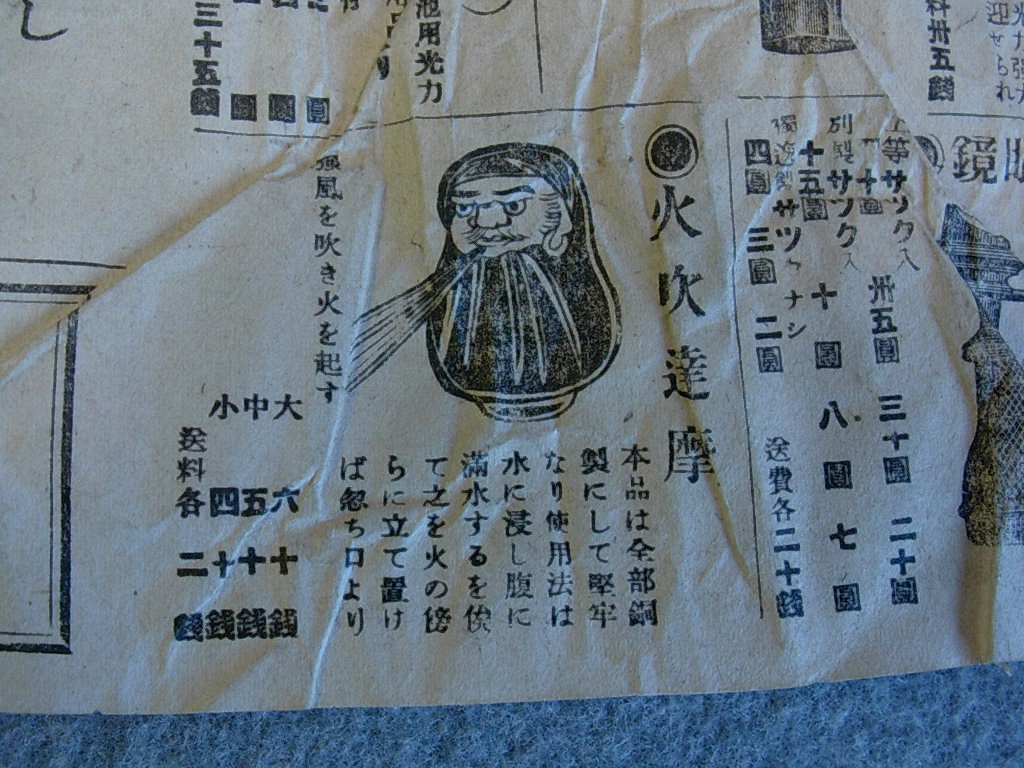 鏡
上等サツク入
卅五圓 三十圓 二十圓
サツク入
十五圓 十圓 八圓 七圓
サツクナシ
四圓 三圓 二圓
送費各二十錢
火吹達摩
本品は全部銅
製にして堅牢
なり使用法は
水に浸し腹に
滿水するを俟
て之を火の傍
らに立て置け
ば忽ち口より
強風を吹き火を起す
大 六十錢
中 五十錢
小 四十錢
送料各二錢
池用光力
三十五錢
料卅五錢
迎せられ
し